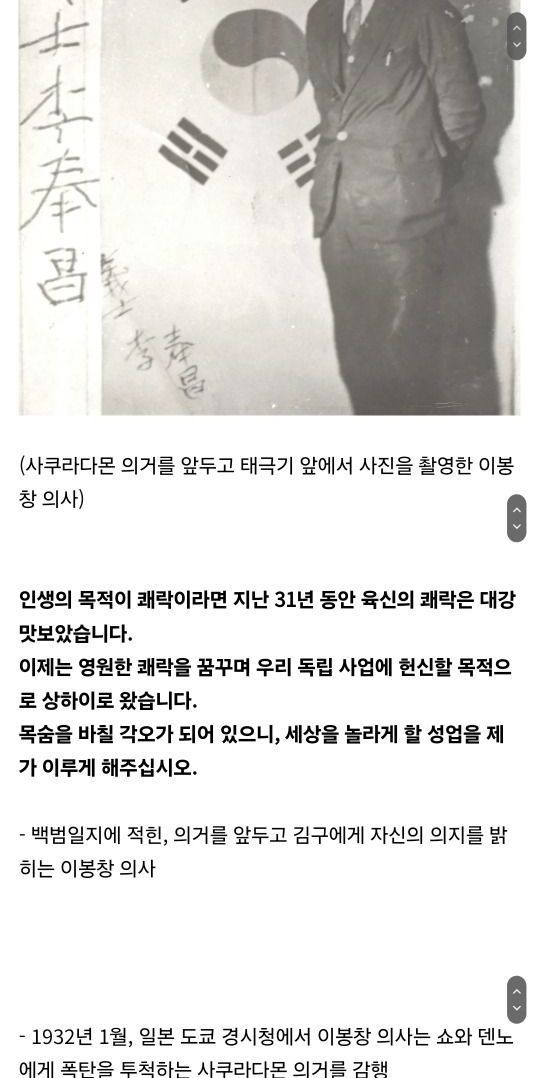 士
李
奉
昌
義士
李奉昌
(사쿠라다몬 의거를 앞두고 태극기 앞에서 사진을 촬영한 이봉
창 의사)
인생의 목적이 쾌락이라면 지난 31년 동안 육신의 쾌락은 대강
맛보았습니다.
이제는 영원한 쾌락을 꿈꾸며 우리 독립 사업에 헌신할 목적으
로 상하이로 왔습니다.
목숨을 바칠 각오가 되어 있으니, 세상을 놀라게 할 성업을 제
가 이루게 해주십시오.
- 백범일지에 적힌, 의거를 앞두고 김구에게 자신의 의지를 밝
히는 이봉창 의사
- 1932년 1월, 일본 도쿄 경시청에서 이봉창 의사는 쇼와 덴노
에게 폭탄을 투척하는 사쿠라다몬 의거를 감행